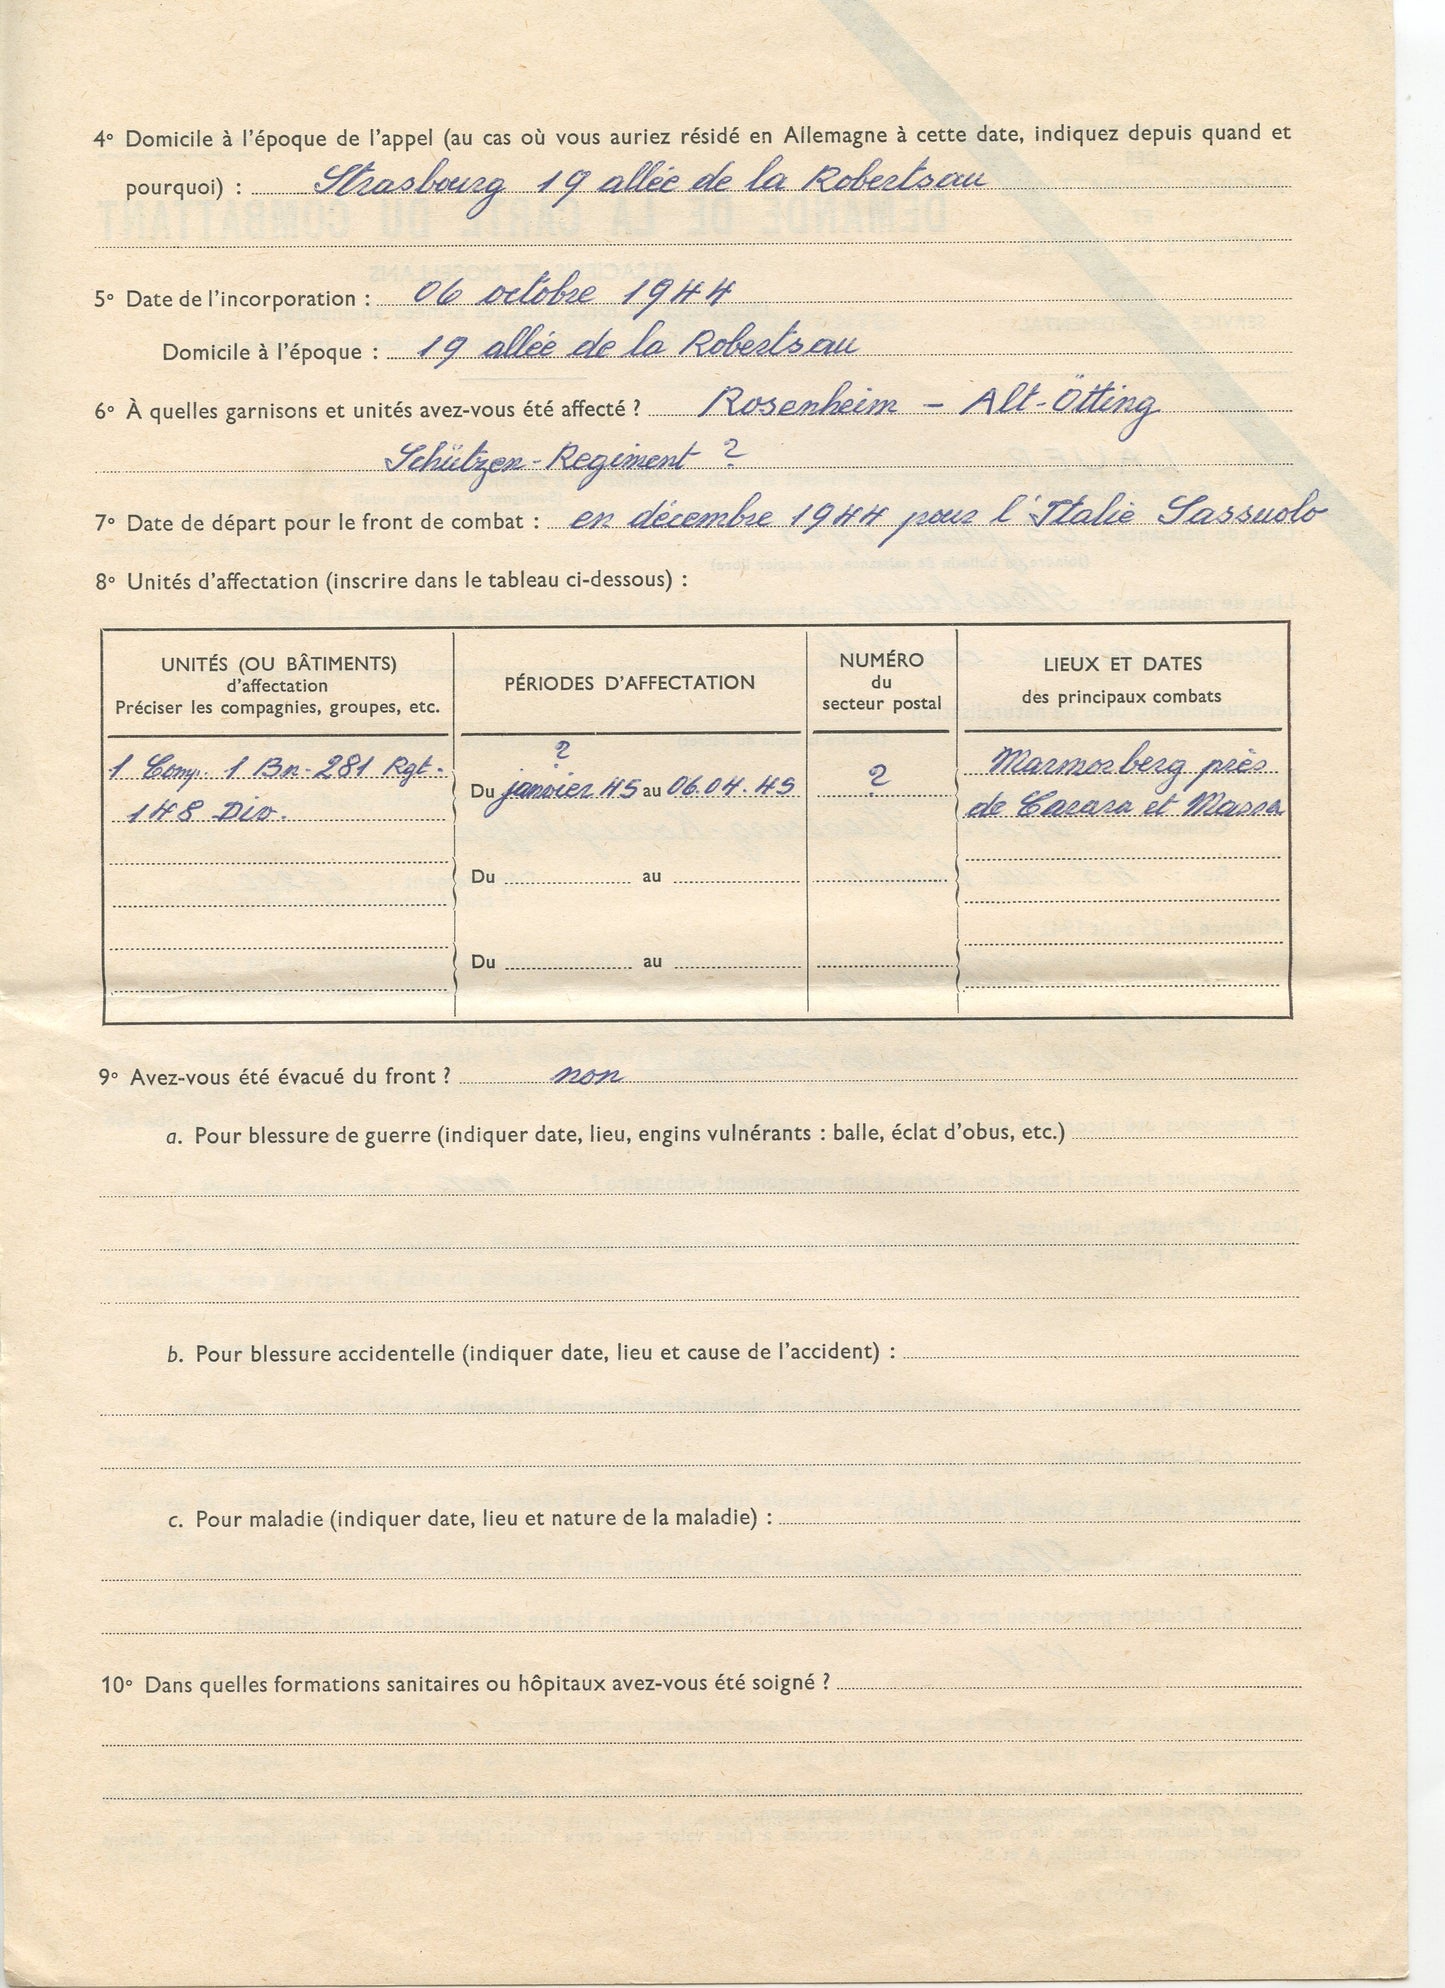 4° Domicile à l'époque de l'appel (au cas où vous auriez résidé en Allemagne à cette date, indiquez depuis quand et
pourquoi) : Strasbourg 19 allée de la Robertsau
5° Date de l'incorporation : 06 octobre 1944
Domicile à l'époque : 19 allée de la Robertsau
6° À quelles garnisons et unités avez-vous été affecté ? Rosenheim – Alt-Ötting
Schützen-Regiment ?
7° Date de départ pour le front de combat : en décembre 1944 pour l'Italie Sassuolo
8° Unités d'affectation (inscrire dans le tableau ci-dessous) :
UNITÉS (OU BÂTIMENTS)
d'affectation
Préciser les compagnies, groupes, etc.
PÉRIODES D'AFFECTATION
NUMÉRO
du
secteur postal
LIEUX ET DATES
des principaux combats
1 Comp. 1 Bn - 281 Rgt -
148 Div.
?
Du janvier 45 au 06.04.45
?
Marmorberg près
de Carara et Massa
Du au
Du au
9° Avez-vous été évacué du front ? non
a. Pour blessure de guerre (indiquer date, lieu, engins vulnérants : balle, éclat d'obus, etc.)
b. Pour blessure accidentelle (indiquer date, lieu et cause de l'accident) :
c. Pour maladie (indiquer date, lieu et nature de la maladie) :
10° Dans quelles formations sanitaires ou hôpitaux avez-vous été soigné ?